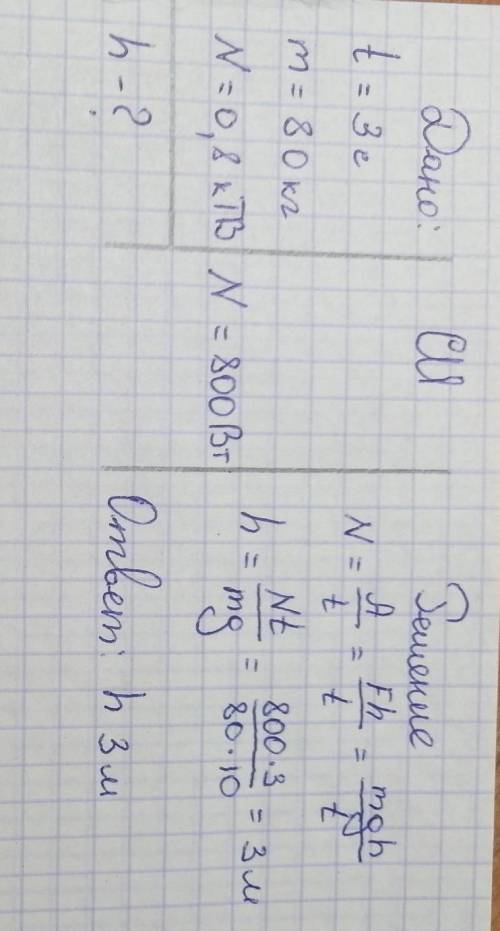 Дано:
t = 3 с
m = 80 кг
N = 0,8 кТВ
h - ?
СИ
N = 800 Вт
Решение
N = A/t = Fh/t = mgh/t
h = Nt/mg = 800·3/80·10 = 3 м
Ответ: h 3 м